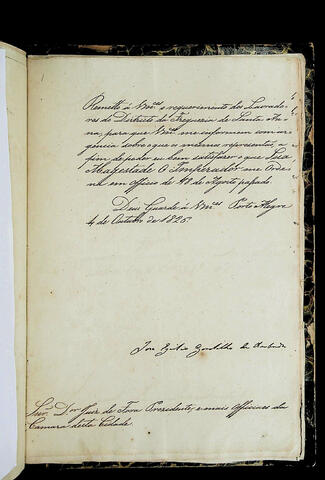 Remetto á Vm.ces o requerimento dos Lavrado-
res do Districto da Freguezia de Santa An-
na, para que Vm.ces me informem com ur-
gencia sobre o que os mesmos representão, a
fim de poder eu bem satisfazer o que Sua
Magestade O Imperador me Orde-
na em officio de 18 de Agosto passado.
Deos Guarde á Vm.ces Porto Alegre
4 de Outubro de 1825.
Jose
Senr.es D.or Juiz de Fora Prezidente, e mais Officiaes da
Camara desta Cidade.